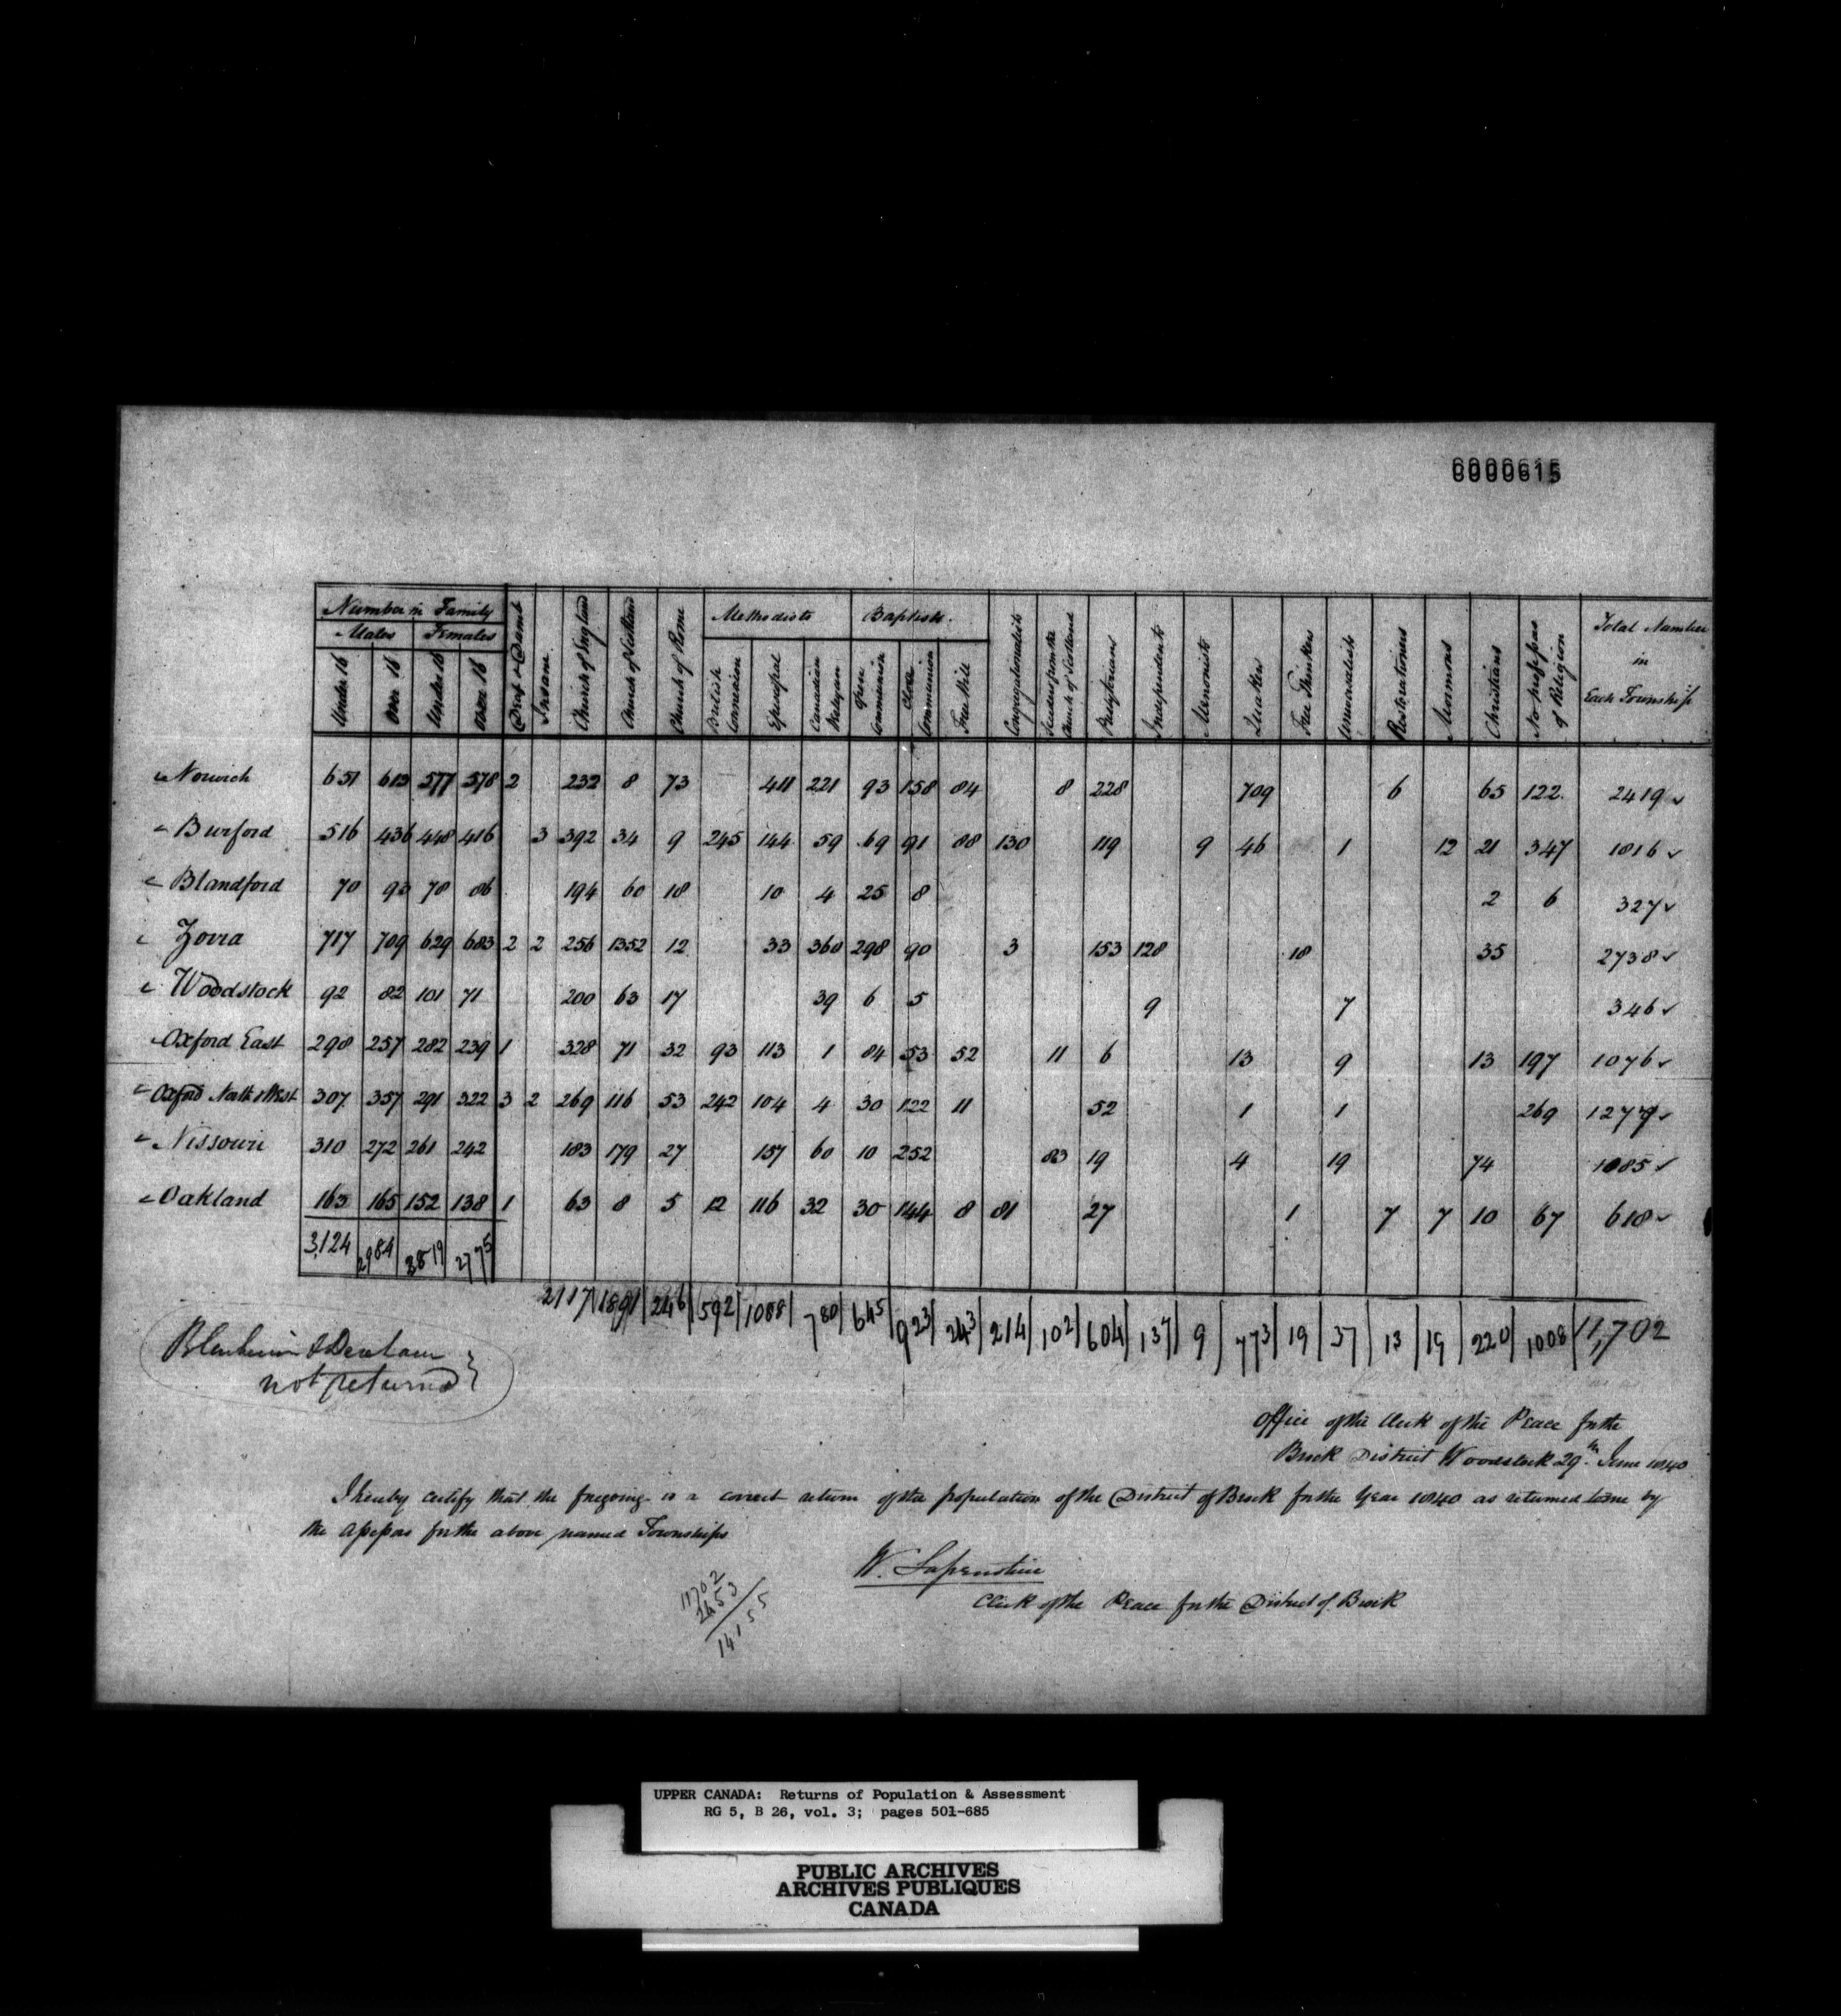 0000615
Number in Family
Males Females
Under 16 Over 16 Under 16 Over 16 Deaf & Dumb Insane Church of England Church of Scotland Church of Rome Methodists British Connexion Episcopal Canadian Wesleyan Baptists. Open Communion Close Communion Free Will Congregationalists Seceders from the Church of Scotland Presbyterians Independents Menonists Quakers Free Thinkers Universalists Restorationers Mormons Christians No profess of Religion Total Number in Each Township
Norwich 651 613 577 578 2 232 8 73 411 221 93 158 84 8 228 709 6 65 122 2419
Burford 516 436 448 416 3 392 34 9 245 144 59 69 91 88 130 119 9 46 1 12 21 347 1816
Blandford 70 93 78 86 194 60 18 10 4 25 8 2 6 327
Zorra 717 709 629 683 2 2 256 1352 12 33 360 298 90 3 153 128 18 35 2738
Woodstock 92 82 101 71 200 63 17 39 6 5 9 7 346
Oxford East 298 257 282 239 1 328 71 32 93 113 1 84 53 52 11 6 13 9 13 197 1076
Oxford North & West 307 357 291 322 3 2 269 116 53 242 104 4 30 122 11 52 1 1 269 1277
Nissouri 310 272 261 242 183 179 27 157 60 10 252 83 19 4 19 74 1085
Oakland 163 165 152 138 1 63 8 5 12 116 32 30 144 8 81 27 1 7 7 10 67 618
3,124 2984 2819 2775
2117 1891 246 592 1088 780 645 923 243 214 102 604 137 9 773 19 37 13 19 220 1008 11,702
Blenheim & Dereham
not returned
Office of the Clerk of the Peace for the
Brock District Woodstock 29th June 1840
I hereby certify that the foregoing is a correct return of the population of the District of Brock for the Year 1840 as returned to me by
the Assessors for the above named Townships
W. Lapenotiere
Clerk of the Peace for the District of Brock
11702
2453
14155
UPPER CANADA: Returns of Population & Assessment
RG 5, B 26, vol. 3; pages 501-685
PUBLIC ARCHIVES
ARCHIVES PUBLIQUES
CANADA